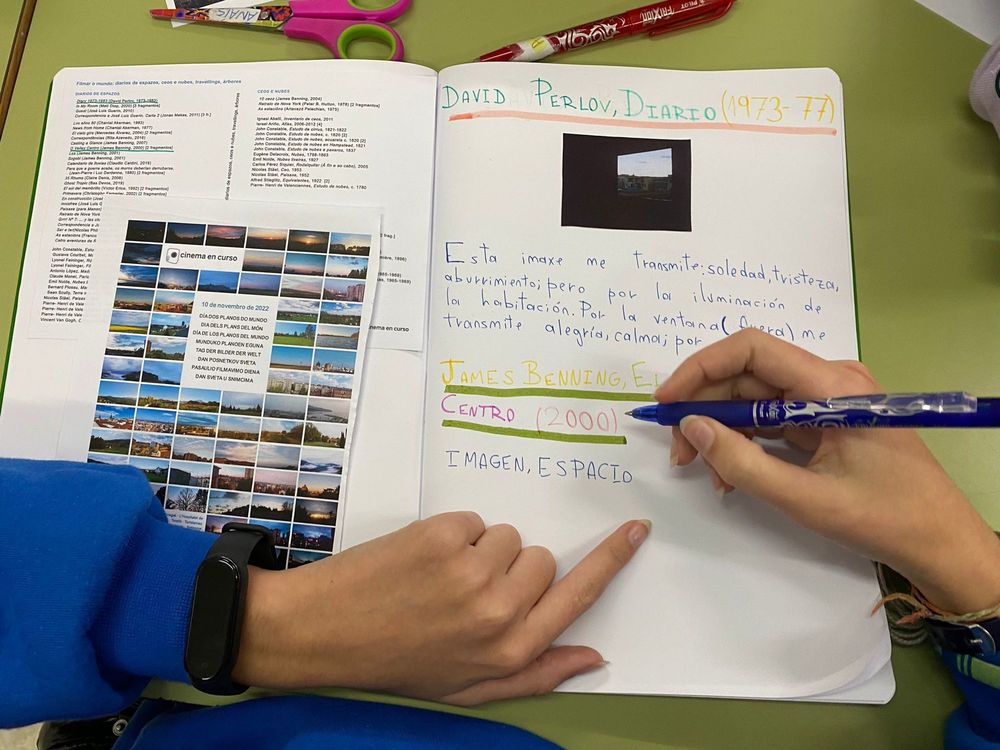 ANAÏS
PILOT FRIXION
Filmar o mundo: diarios de espazos, ceos e nubes, travellings, árbores
DIARIOS DE ESPAZOS
Diary 1973-1983 (David Perlov, 1973-1983)
In My Room (Mati Diop, 2020) [2 fragmentos]
Guest (José Luis Guerín, 2010)
Correspondencia a José Luis Guerín, Carta 2 (Jonas Mekas, 2011) [3 f.]
Los años 80 (Chantal Akerman, 1983)
News from Home (Chantal Akerman, 1977)
El cielo gira (Mercedes Álvarez, 2004) [2 fragmentos]
Correspondências (Rita Azevedo, 2016)
Casting a Glance (James Benning, 2007)
El Valley Centro (James Benning, 2000) [2 fragmentos]
Los (James Benning, 2001)
Sogobi (James Benning, 2001)
Calendario de lluvias (Claudio Caldini, 2019)
Para que a guerra acabe, os muros deberían derrubarse,
(Jean-Pierre i Luc Dardenne, 1980) [2 fragmentos]
35 Rhums (Claire Denis, 2008)
Ghost Tropic (Bas Devos, 2019)
El sol del membrillo (Víctor Erice, 1992) [2 fragmentos]
Primavera (Christophe
En construcción (José
Innisfree (José Luis G
Paisaxe (para Manon)
Retrato de Nova York
Correspondencia a
Ser e ter(Nicolas Phil
As estacións (Franco
Catro aventuras de R
John Constable, Estu
Gustave Courbet,
Lyonel Feininger,
Lyonel Feininger,
Antonio López,
Claude Monet,
Emil Nolde, Nubes
Bernard Plossu,
Sean Scully, Terra
Nicolas Stäel, Paisaxe
Pierre- Henri de Vale
Pierre- Henri de Vale
Vincent Van Gogh, C
CEOS E NUBES
10 ceos (James Benning, 2004)
Retrato de Nova York (Peter B. Hutton, 1979) [2 fragmentos]
As estacións (Artavazd Pelachian, 1975)
Ignasi Aballí, Inventario de ceos, 2011
Israel Ariño, Atlas, 2006-2012 [4]
John Constable, Estudo de cirrus, 1821-1822
John Constable, Estudo de nubes, c. 1820 [2]
John Constable, Estudo de nubes, acuarela c. 1820 [2]
John Constable, Estudo de nubes en Hampstead, 1821
John Constable, Estudo de nubes e paxaros, 1837
Eugène Delacroix, Nubes, 1798-1863
Emil Nolde, Nubes lixeiras, 1927
Carlos Pérez Siquier, Rodalquilar (A fin e ao cabo), 2005
Nicolas Stäel, Ceo, 1953
Nicolas Stäel, Paisaxe, 1952
Alfred Stieglitz, Equivalentes, 1922 [2]
Pierre- Henri de Valenciennes, Estudo de nubes, c. 1780
diarios de espazos, ceos e nubes, travellings, árbores
cinema en curso
cinema en curso
10 de novembro de 2022
DÍA DOS PLANOS DO MUNDO
DIA DELS PLANS DEL MÓN
DÍA DE LOS PLANOS DEL MUNDO
MUNDUKO PLANOEN EGUNA
TAG DER BILDER DER WELT
DAN POSNETKOV SVETA
PASAULIO FILMAVIMO DIENA
DAN SVETA U SNIMCIMA
DAVID PERLOV, DIARIO (1973-77)
Esta imaxe me transmite: soledad, tristeza,
aburrimiento; pero por la iluminación de
la habitación. Por la ventana (fuera) me
transmite alegría, calma; por
JAMES BENNING, EL
CENTRO (2000)
IMAGEN, ESPACIO